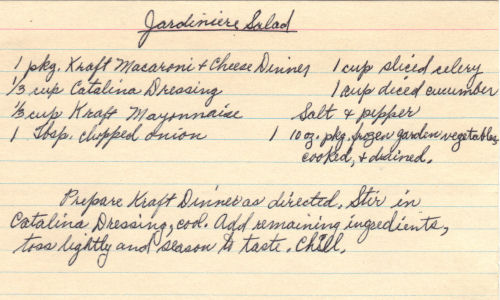 Jardiniere Salad
1 pkg. Kraft Macaroni + Cheese Dinner 1 cup sliced celery
1/3 cup Catalina Dressing 1 cup diced cucumber
1/3 cup Kraft Mayonnaise Salt & pepper
1 Tbsp. chopped onion 1 10 oz. pkg. frozen garden vegetables,
cooked, & drained.
Prepare Kraft Dinner as directed. Stir in
Catalina Dressing, cool. Add remaining ingredients,
toss lightly and season to taste. Chill.